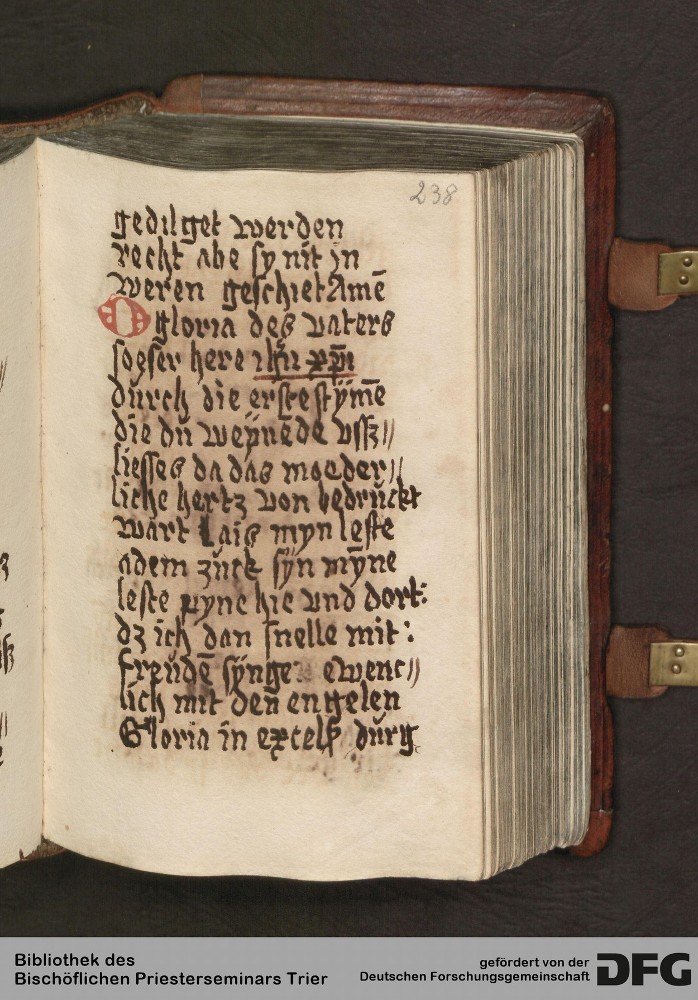 238
gedilget werden
recht abe sy nit in
weren geschiet Amē
O gloria des vaters
soeser here ihū xp̄i
durch die erste stȳme
die dü weynēde vsz//
liesses da das moeder//
liche hertz von bedrückt
wart Lais myn leste
adem zück syn mȳne
leste pyne hie vnd dort:
dz ich dan snelle mit:
freüdē synge ewenc//
lich mit den engelen
Gloria in excelsꝭ dürg
Bibliothek des
Bischöflichen Priesterseminars Trier
gefördert von der
Deutschen Forschungsgemeinschaft
DFG